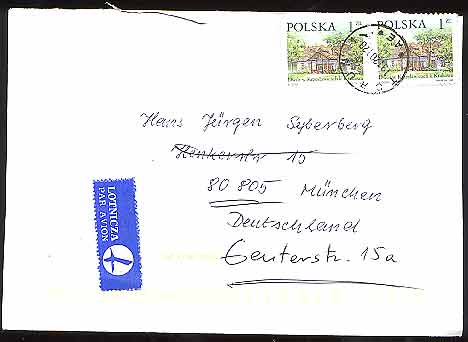 POLSKA 1 zł POLSKA 1 zł
Hans Jürgen Syberberg
15
80805 München
Deutschland
Genterstr. 15a
LOTNICZA
PAR AVION